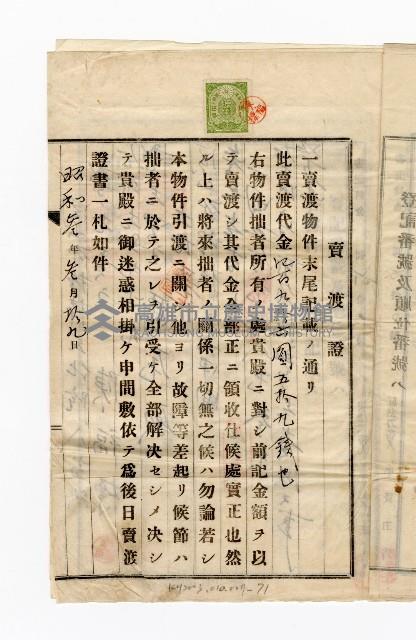 賣渡證
一賣渡物件末尾記載ノ通リ
此賣渡代金 九 六圓五拾九錢也
右物件拙者所有ノ處貴殿ニ對シ前記金額ヲ以
テ賣渡シ其代金全部正ニ領收仕候處實正也然
ル上ハ將來拙者ノ關係一切無之候ハ勿論若シ
本物件引渡ニ關シ他ヨリ故障等差起リ候節ハ
拙者ニ於テ之レヲ引受ケ全部解決セシメ決シ
テ貴殿ニ御迷惑相掛ケ申間敷依テ爲後日賣渡
證書一札如件
昭和叁年叁月 九日
登記番號及順位番號ハ
高雄市立歷史博物館
KAOHSIUNG MUSEUM OF HISTORY